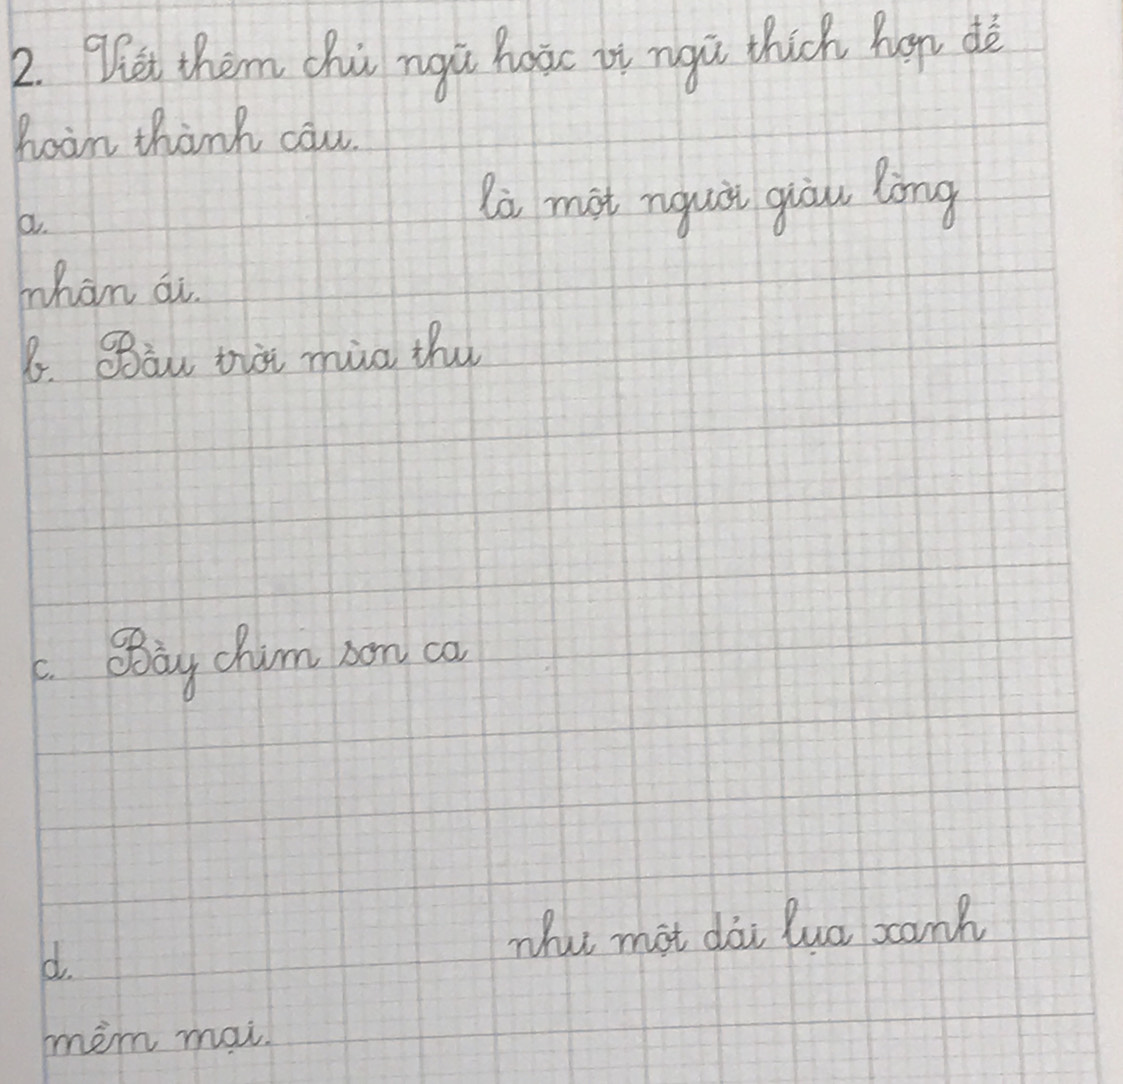 2. Viết thêm chủ ngữ hoặc vị ngữ thích hợp để
hoàn thành câu.
a. là một người giàu lòng
nhân ái.
b. Bầu trời mùa thu
c. Bầy chim sơn ca
d. như một dải lụa xanh
mềm mại.